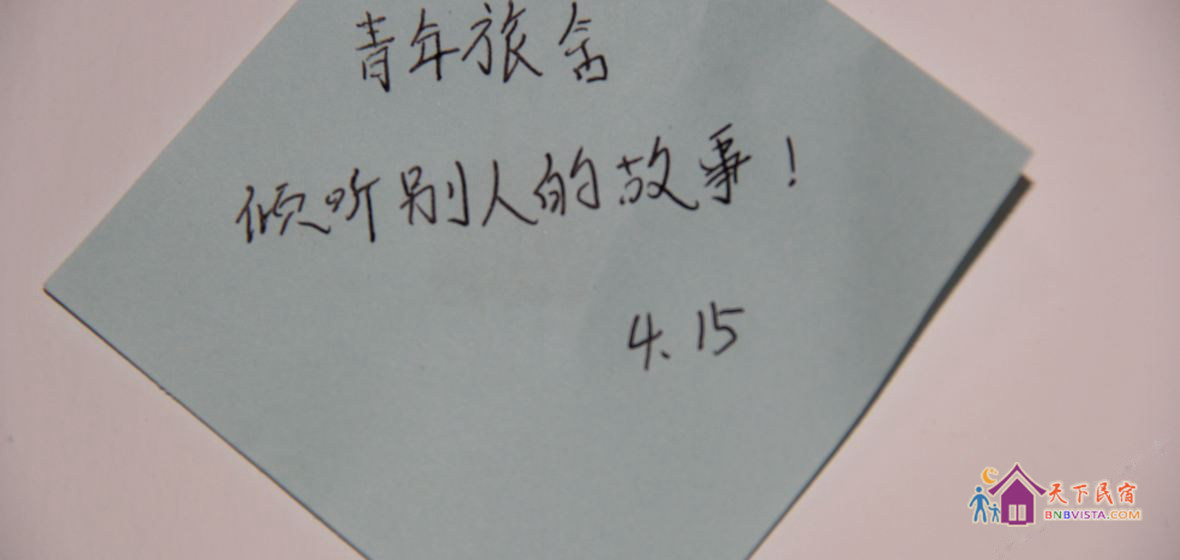 青年旅舍
倾听别人的故事！
4.15
天下民宿
BNBVISTA.COM